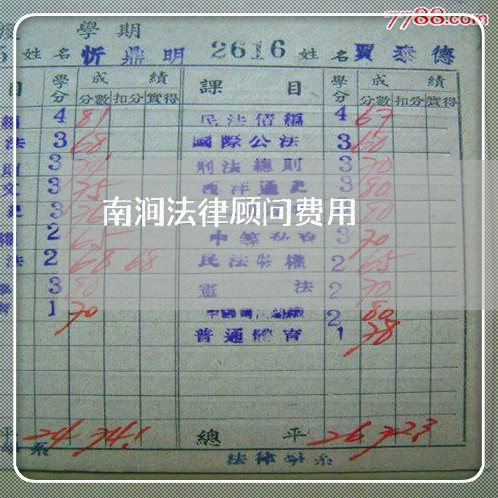 7788.com
學期
姓名 忻鼎明 2616 姓名 賈泰德
目 學分 成績 課目 學分 成績
分數 扣分 實得 分數 扣分 實得
4 81 民法債編 4 67
法 3 68 國際公法 3 60
3 刑法總則 3 70
3 75 西洋通史 3 80
南涧法律顾问费用
2 65 3 70
法 2 68 68 民法物權 2 65
3 80 憲法 2 70
1 70 2 80
普通體育 1 78
平 24 74.1 總平 26 72.3
系 法律學系